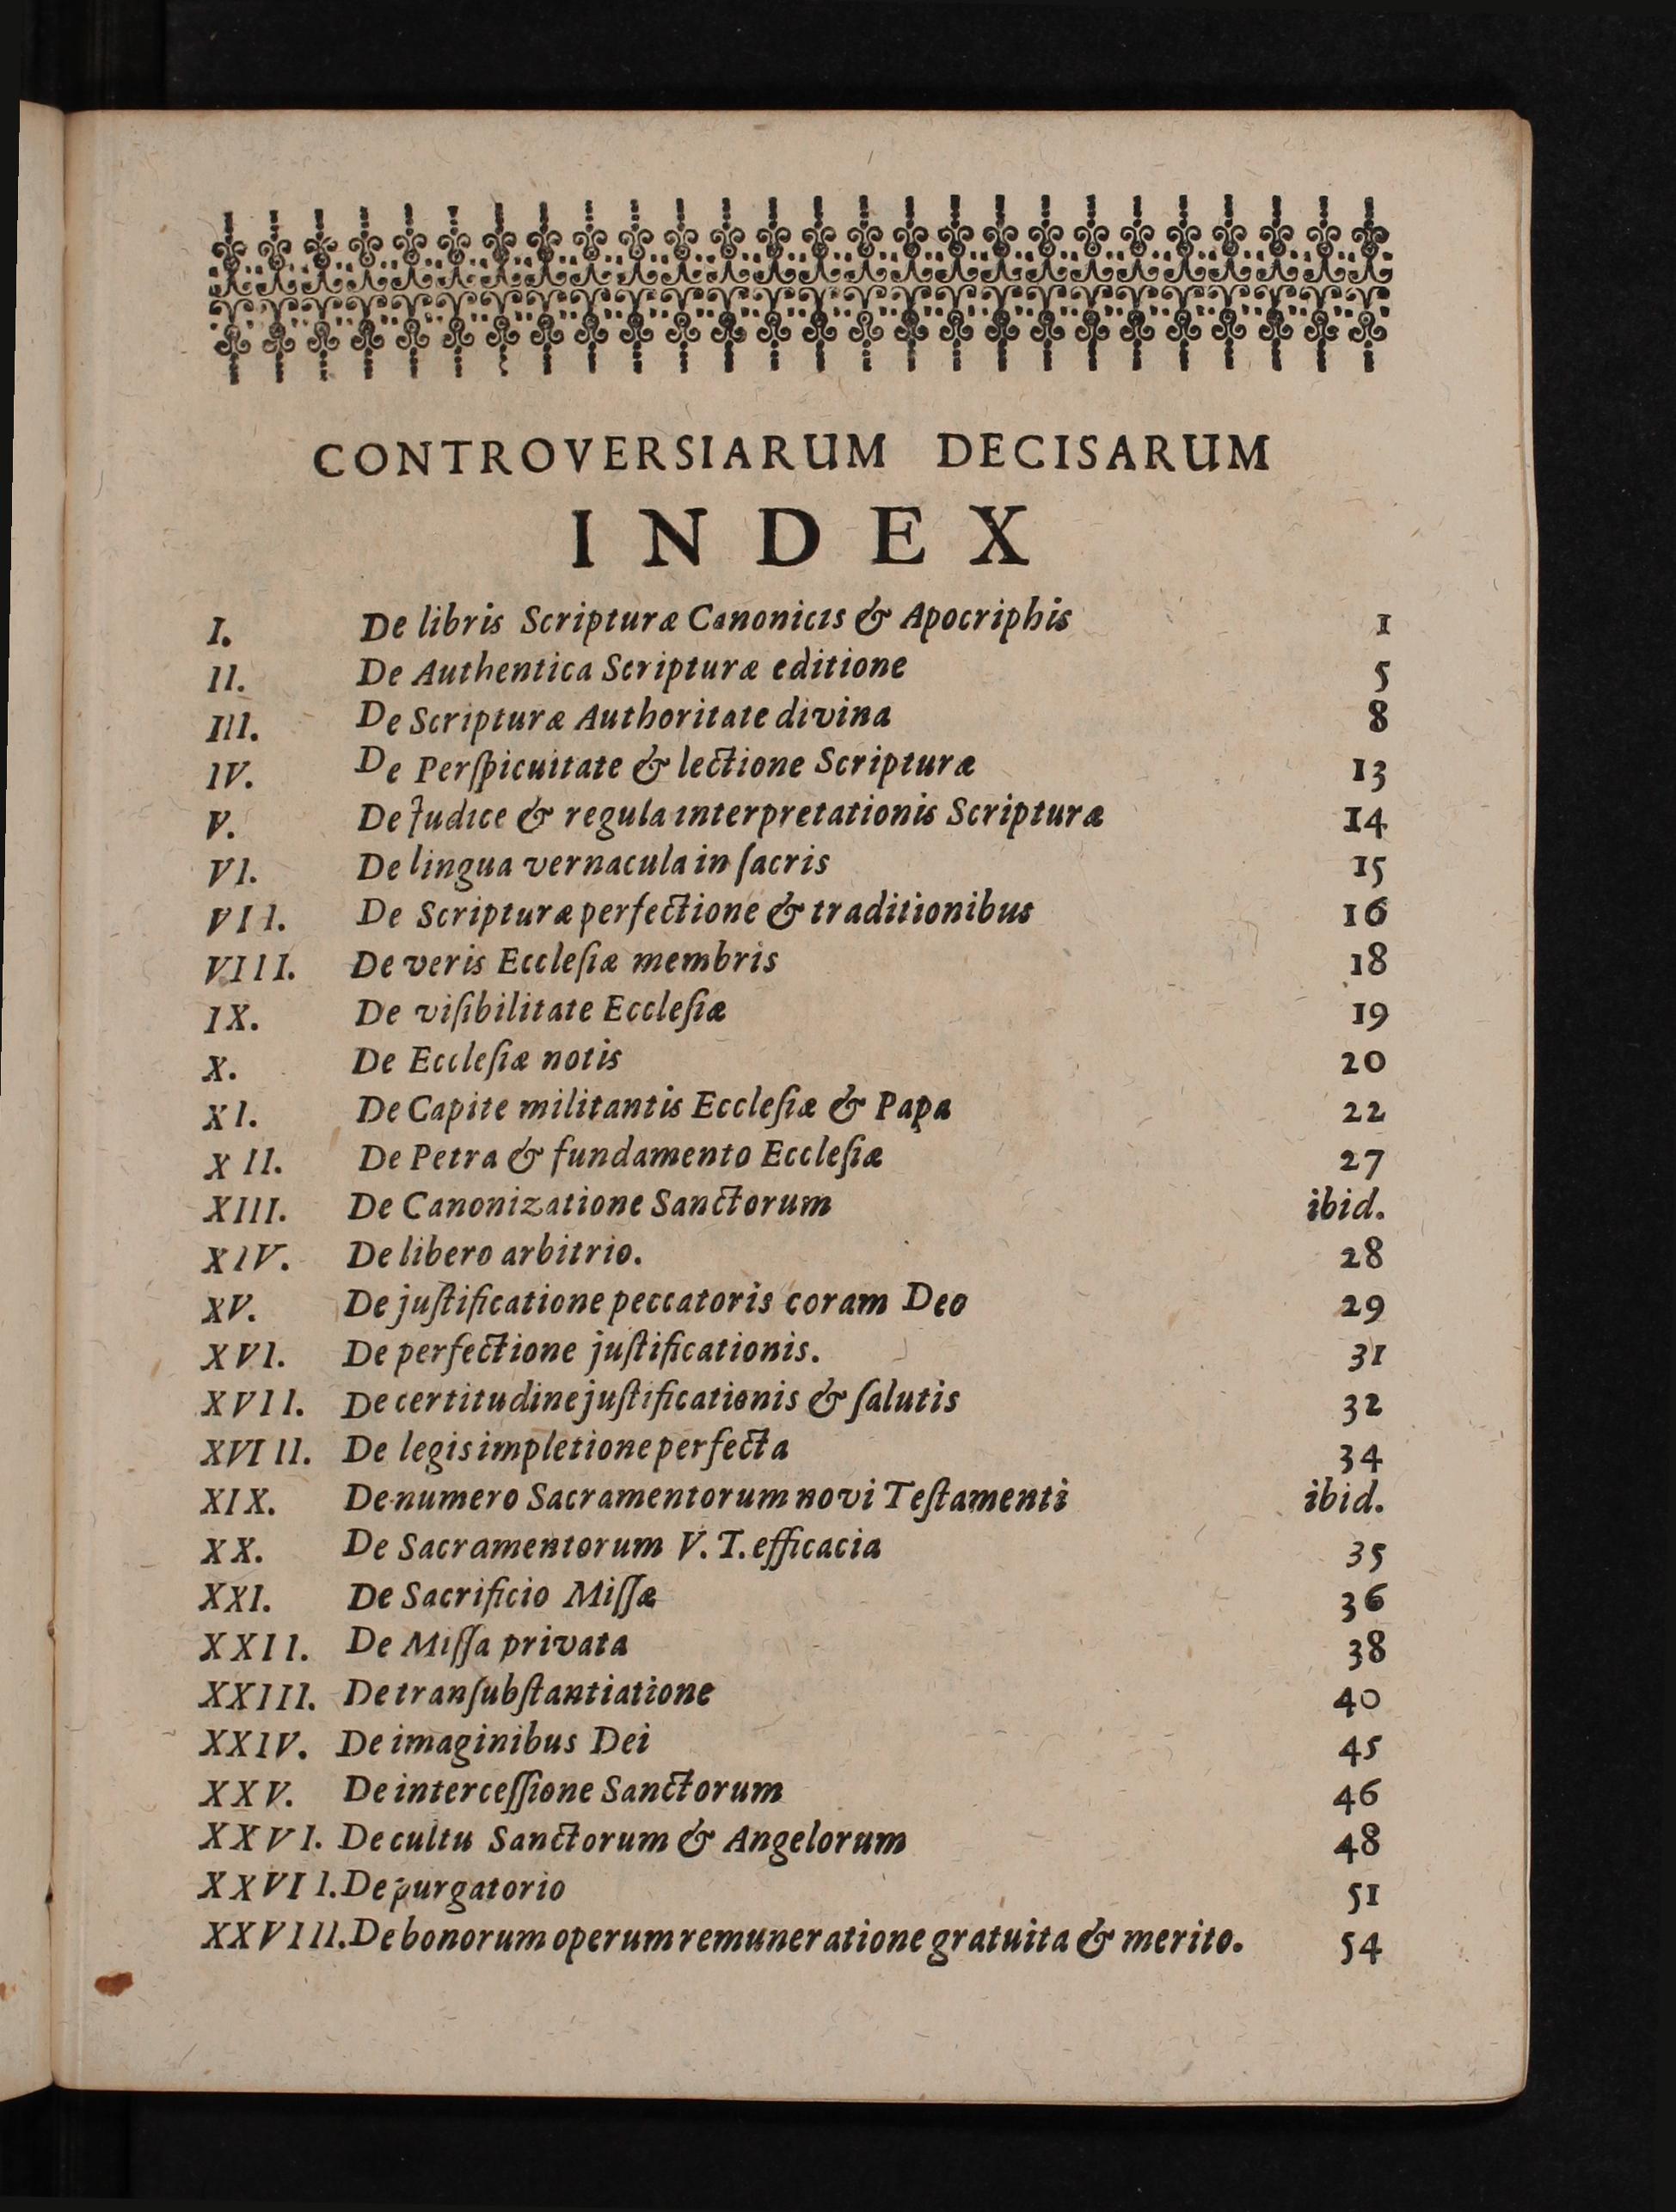 CONTROVERSIARUM DECISARUM
INDEX
I. De libris Scripturæ Canonicis & Apocriphis 1
II. De Authentica Scripturæ editione 5
III. De Scripturæ Authoritate divina 8
IV. De Perſpicuitate & lectione Scripturæ 13
V. De Judice & regula interpretationis Scripturæ 14
VI. De lingua vernacula in ſacris 15
VII. De Scripturæ perfectione & traditionibus 16
VIII. De veris Eccleſiæ membris 18
IX. De viſibilitate Eccleſiæ 19
X. De Eccleſiæ notis 20
XI. De Capite militantis Eccleſiæ & Papa 22
XII. De Petra & fundamento Eccleſiæ 27
XIII. De Canonizatione Sanctorum ibid.
XIV. De libero arbitrio. 28
XV. De juſtificatione peccatoris coram Deo 29
XVI. De perfectione juſtificationis. 31
XVII. De certitudine juſtificationis & ſalutis 32
XVIII. De legis impletione perfecta 34
XIX. De numero Sacramentorum novi Teſtamenti ibid.
XX. De Sacramentorum V. T. efficacia 35
XXI. De Sacrificio Miſſæ 36
XXII. De Miſſa privata 38
XXIII. De tranſubſtantiatione 40
XXIV. De imaginibus Dei 45
XXV. De interceſſione Sanctorum 46
XXVI. De cultu Sanctorum & Angelorum 48
XXVII. De purgatorio 51
XXVIII. De bonorum operum remuneratione gratuita & merito. 54